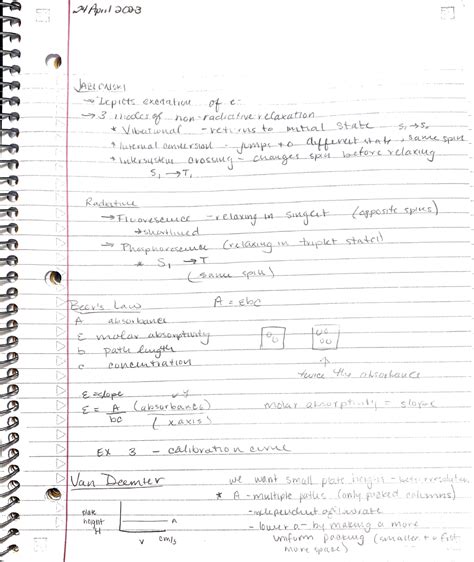 21 April 2023
JABLONSKI
→ Depicts excitation of e-
→ 3 modes of non-radiative relaxation
* Vibrational - returns to initial state S₁→S₀
* Internal conversion - jumps to different state, same spin
* Intersystem crossing - changes spin before relaxing
S₁ → T₁
Radiative
→ Fluorescence - relaxing in singlet (opposite spins)
→ shortlived
→ Phosphorescence (relaxing in triplet state)
* S₁ → T
(same spin)
Beer's Law A = εbc
A absorbance
ε molar absorptivity
b path length
c concentration
twice the absorbance
ε = slope
ε = A/bc (absorbance) (x axis)
molar absorptivity = slope
EX 3 - calibration curve
Van Deemter
we want small plate height -
* A - multiple paths (only packed columns)
- independent of
- lower A - by making a more
uniform packing (smaller to fit
more space)
plate
height
H
A
v cm/s